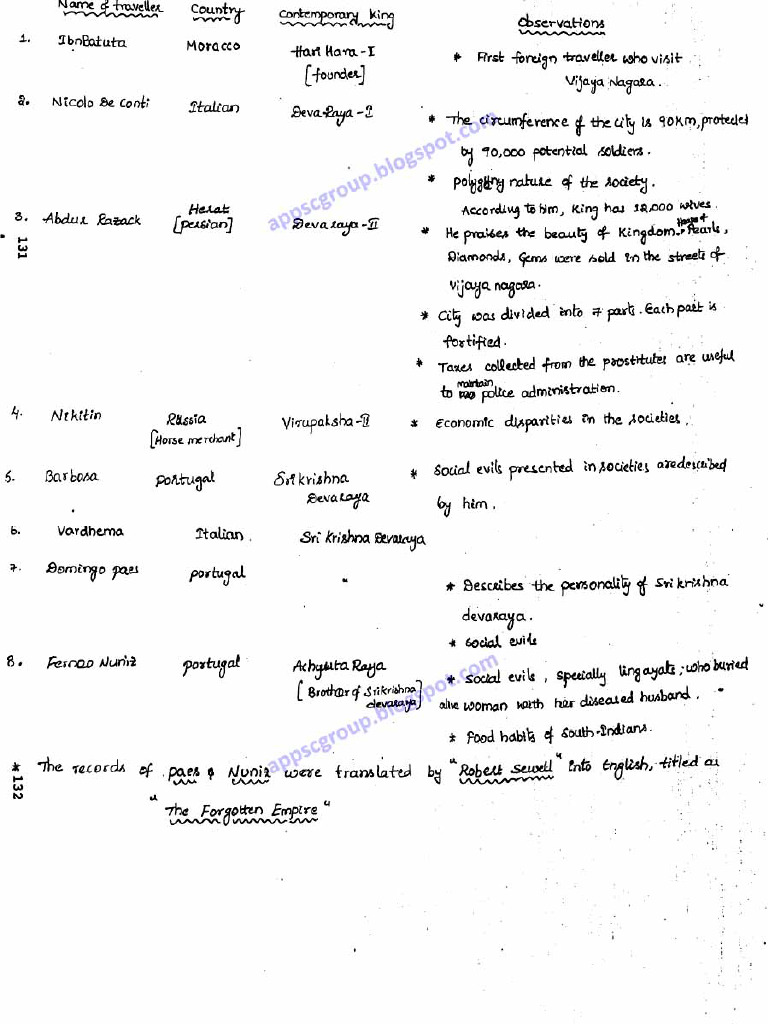 Name of traveller Country Contemporary King Observations
1. IbnBatuta Moracco Hari Hara-I * First foreign traveller who visit
[founder] Vijaya Nagara.
2. Nicolo De Conti Italian Deva Raya-I * The circumference of the city is 90Km, protected
by 90,000 potential soldiers.
appscgroup.blogspot.com
* polygyny nature of the society.
According to him, King has 12,000 wives.
3. Abdur Razack Herat [persian] Devaraya-II * He praises the beauty of Kingdom. Heaps of Pearls,
131
Diamonds, Gems were sold in the streets of
Vijaya nagara.
* City was divided into 7 parts. Each part is
fortified.
* Taxes collected from the prostitutes are useful
to maintain police administration.
4. Nikitin Russia Virupaksha-II * Economic disparities in the societies.
[Horse merchant]
5. Barbosa portugal Sri krishna Devaraya * Social evils presented in societies are described
by him.
6. Vardhema Italian. Sri Krishna Devaraya
7. Domingo paes portugal " * Describes the personality of Sri krishna
devaraya.
* Social evils
8. Fernao Nuniz portugal Achyuta Raya * Social evils, specially lingayats, who buried
[Brother of Sri krishna devaraya] alive woman with her diseased husband.
appscgroup.blogspot.com
* Food habits of South-Indians.
* The records of paes & Nuniz were translated by "Robert Sewell" into English, titled as
132
"The Forgotten Empire"